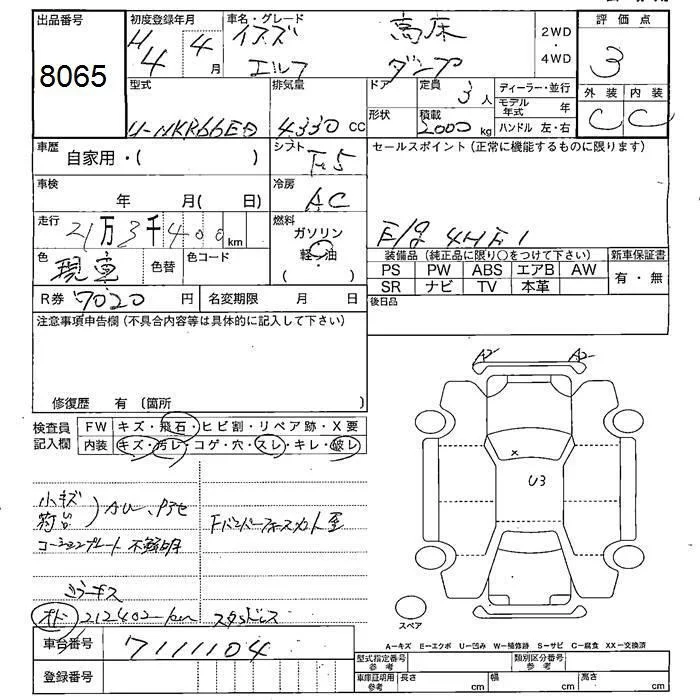 出品番号 初度登録年月 車名・グレード 評価点
8065 H4年 4月 イスズ 高床 2WD・4WD 3
エルフ ダンプ
型式 排気量 ドア 定員 3人 ディーラー・並行 外装 内装
形状 積載 モデル年式 年 C C
U-NKR66ED 4330cc 2000kg ハンドル 左・右
車歴 自家用・( ) シフト F5 セールスポイント(正常に機能するものに限ります)
車検 年 月( 日) 冷房 AC
走行 21万3千400km 燃料 ガソリン E/g 4HF1
色 現車 色替 色コード 軽油 ( ・ ) 装備品(純正品に限り○をつけて下さい) 新車保証書
PS PW ABS エアB AW 有・無
SR ナビ TV 本革
R券 7020円 名変期限 月 日 後日品
注意事項申告欄(不具合内容等は具体的に記入して下さい)
修復歴 有(箇所 )
検査員記入欄 FW キズ・飛石・ヒビ割・リペア跡・X要
内装 キズ・汚レ・コゲ・穴・スレ・キレ・破レ
A2 A2
×
U3
小キズ
コーションプレート 不鮮明
オド 212402km スタッドレス
スペア
車台番号 7111104
A-キズ E-エクボ U-凹み W-補修跡 S-サビ C-腐食 XX-交換済
登録番号 型式指定番号参考 類別区分番号参考
車庫証明用参考 長さ cm 幅 cm 高さ cm